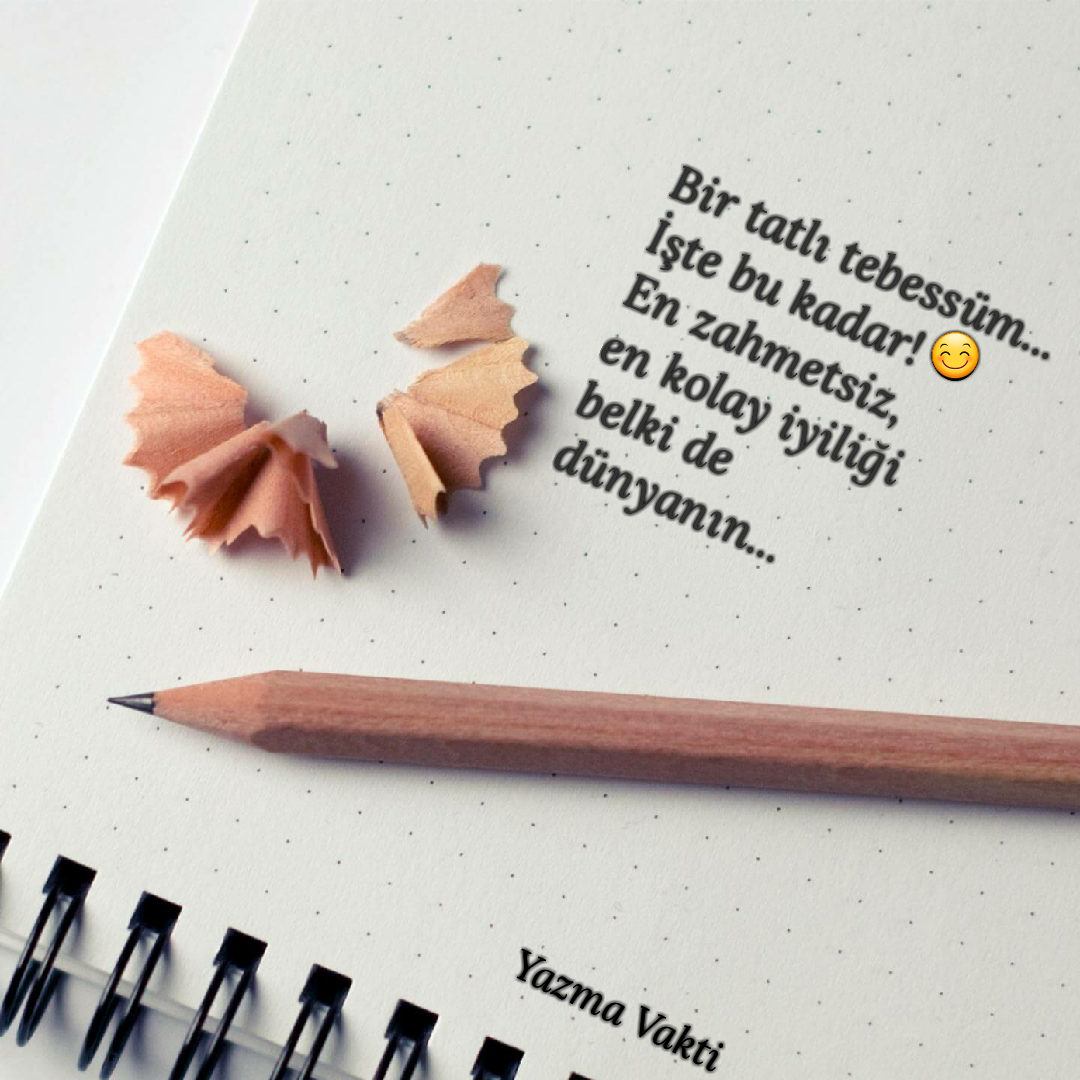 Bir tatlı tebessüm...
İşte bu kadar! 😊
En zahmetsiz,
en kolay iyiliği
belki de
dünyanın...
Yazma Vakti